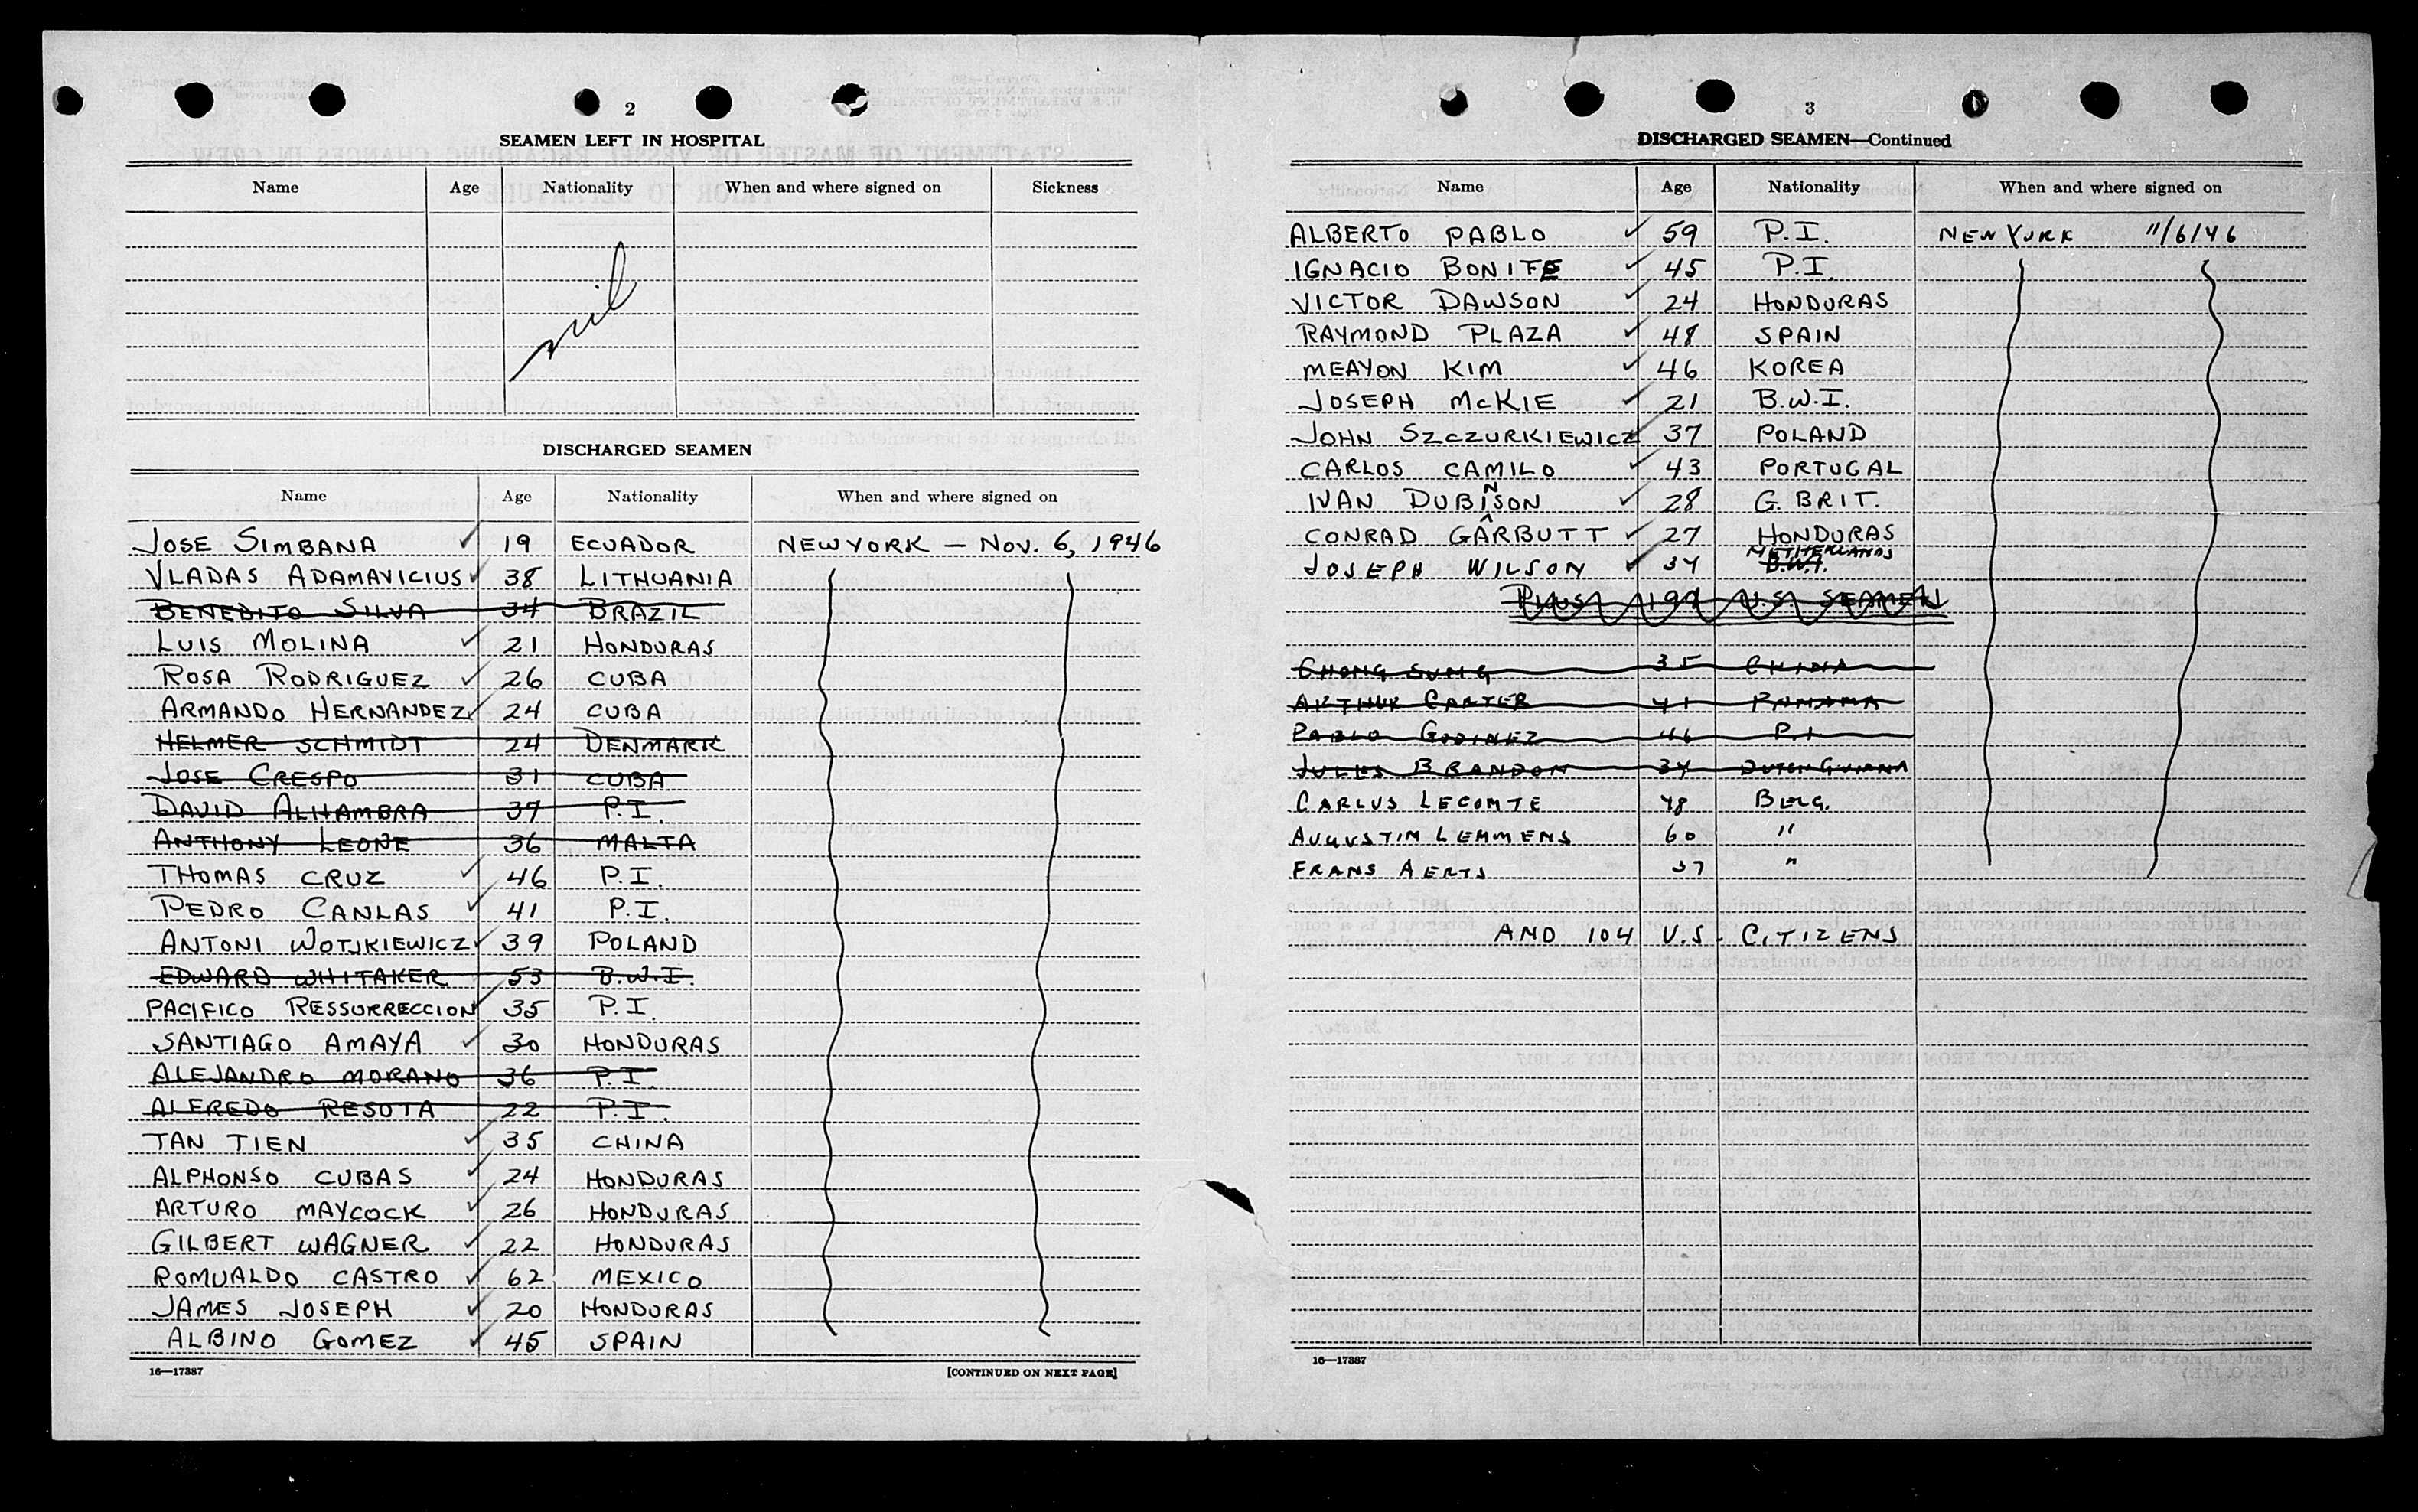 2
SEAMEN LEFT IN HOSPITAL
Name Age Nationality When and where signed on Sickness
nil
DISCHARGED SEAMEN
Name Age Nationality When and where signed on
JOSE SIMBANA ✓ 19 ECUADOR NEW YORK — NOV. 6, 1946
VLADAS ADAMAVICIUS ✓ 38 LITHUANIA
BENEDITO SILVA 34 BRAZIL
LUIS MOLINA ✓ 21 HONDURAS
ROSA RODRIGUEZ ✓ 26 CUBA
ARMANDO HERNANDEZ ✓ 24 CUBA
HELMER SCHMIDT 24 DENMARK
JOSE CRESPO 31 CUBA
DAVID ALHAMBRA 37 P.I.
ANTHONY LEONE 36 MALTA
THOMAS CRUZ ✓ 46 P.I.
PEDRO CANLAS ✓ 41 P.I.
ANTONI WOTJKIEWICZ ✓ 39 POLAND
EDWARD WHITAKER 53 B.W.I.
PACIFICO RESSURRECCION ✓ 35 P.I.
SANTIAGO AMAYA ✓ 30 HONDURAS
ALEJANDRO MORANO 36 P.I.
ALFREDO RESOTA 22 P.I.
TAN TIEN ✓ 35 CHINA
ALPHONSO CUBAS ✓ 24 HONDURAS
ARTURO MAYCOCK ✓ 26 HONDURAS
GILBERT WAGNER ✓ 22 HONDURAS
ROMUALDO CASTRO ✓ 62 MEXICO
JAMES JOSEPH ✓ 20 HONDURAS
ALBINO GOMEZ ✓ 45 SPAIN
16—17387 [CONTINUED ON NEXT PAGE]
3
DISCHARGED SEAMEN—Continued
Name Age Nationality When and where signed on
ALBERTO PABLO ✓ 59 P.I. NEW YORK 11/6/46
IGNACIO BONIFE ✓ 45 P.I.
VICTOR DAWSON ✓ 24 HONDURAS
RAYMOND PLAZA ✓ 48 SPAIN
MEAYON KIM ✓ 46 KOREA
JOSEPH McKIE ✓ 21 B.W.I.
JOHN SZCZURKIEWICZ ✓ 37 POLAND
CARLOS CAMILO ✓ 43 PORTUGAL
IVAN DUBINSON ✓ 28 G. BRIT.
CONRAD GARBUTT ✓ 27 HONDURAS
JOSEPH WILSON ✓ 34 B.W.I. NETHERLANDS
PLUS U.S. SEAMEN
CHONG SUNG 35 CHINA
ARTHUR CARTER 41 PANAMA
PABLO GODINEZ 46 P.I.
JULES BRANDON 34 DUTCH GUIANA
CARLUS LECOMTE 48 BELG.
AUGUSTIN LEMMENS 60 "
FRANS AERTS 37 "
AND 104 U.S. CITIZENS
16—17387